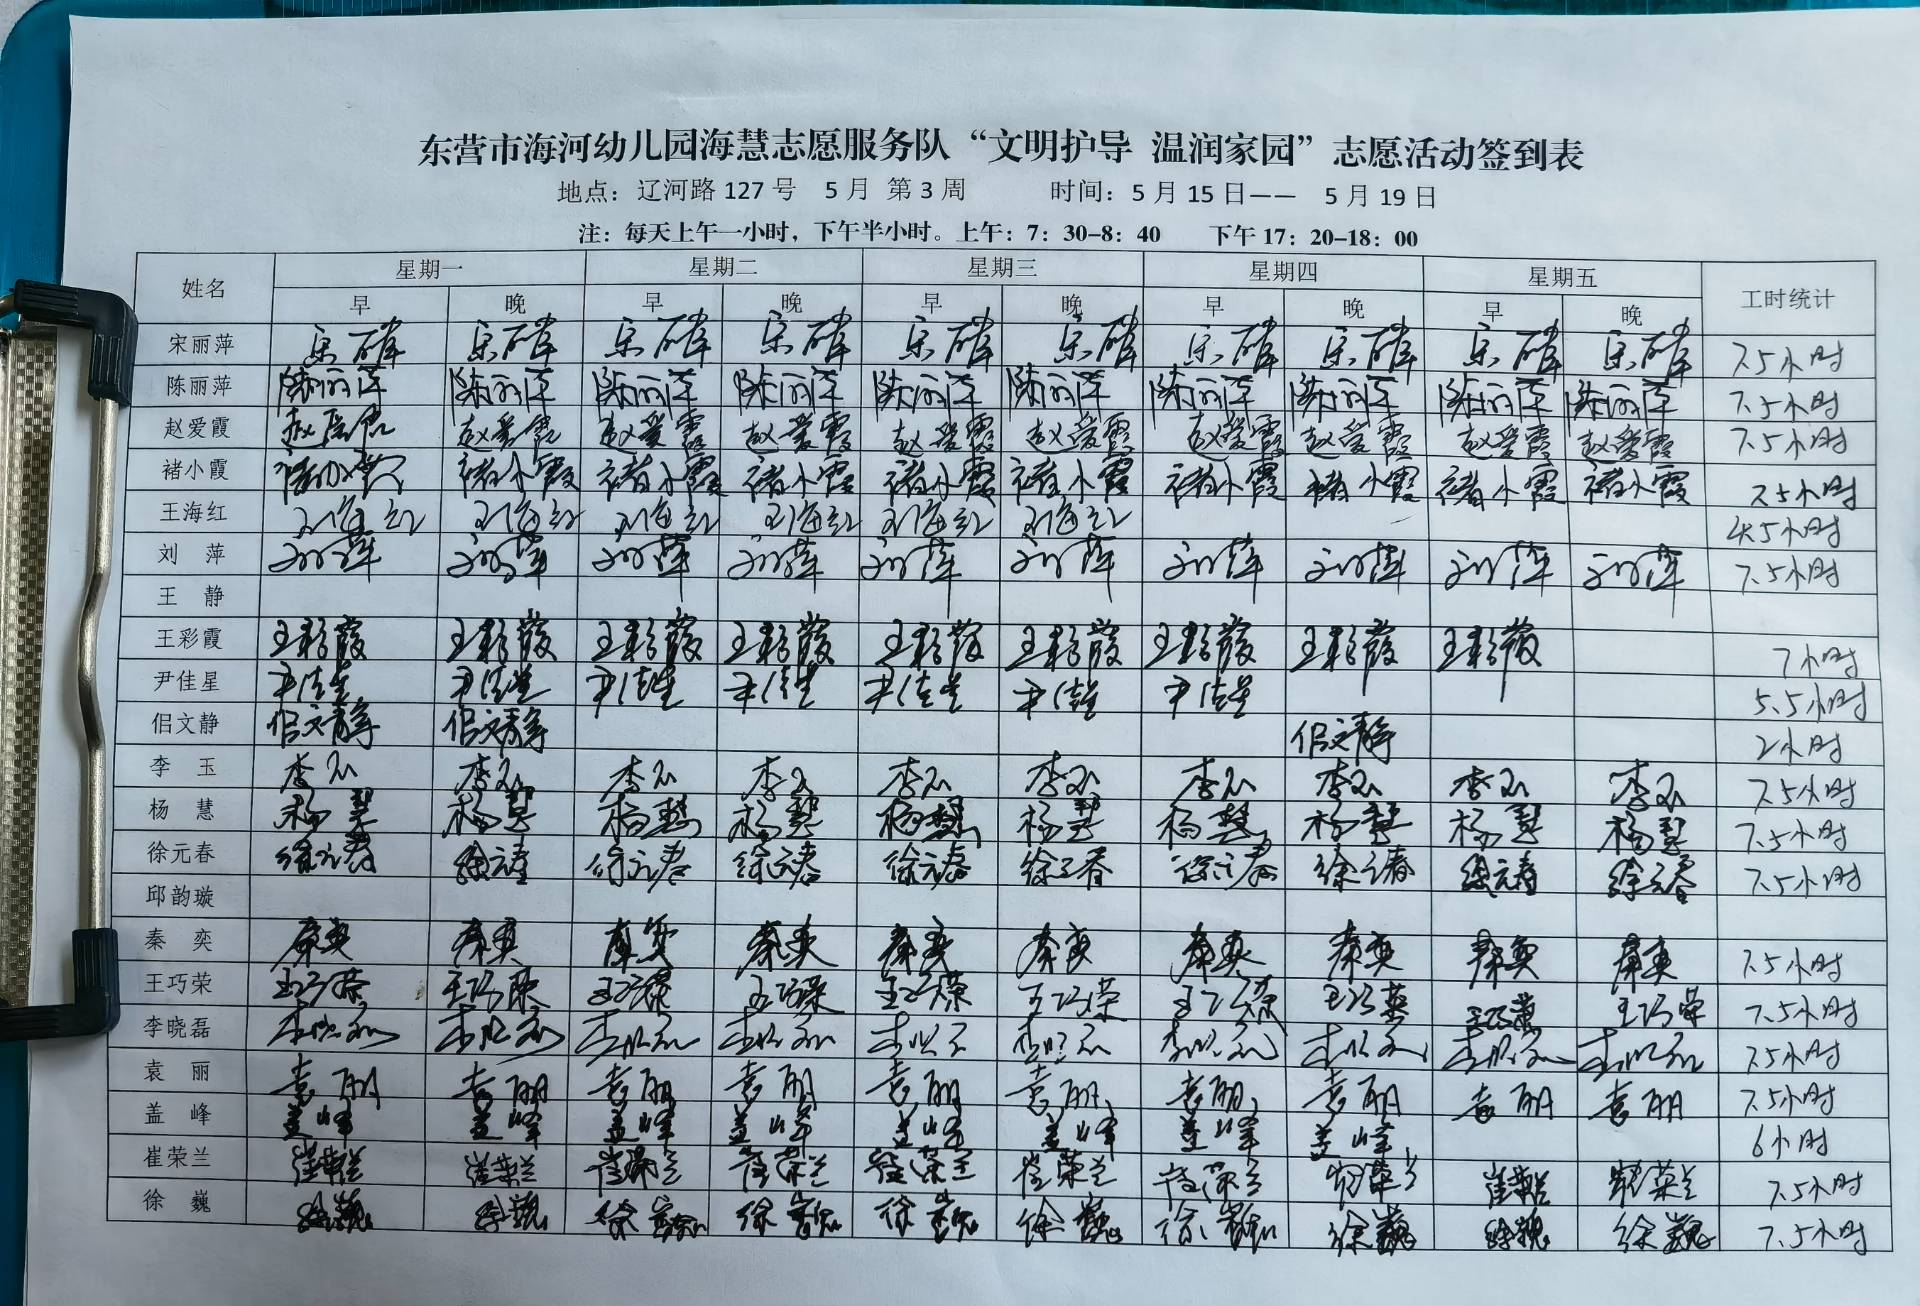 东营市海河幼儿园海慧志愿服务队“文明护导 温润家园”志愿活动签到表
地点：辽河路 127 号 5 月 第 3 周 时间：5 月 15 日—— 5 月 19 日
注：每天上午一小时，下午半小时。上午：7：30-8：40 下午 17：20-18：00
姓名 星期一 星期二 星期三 星期四 星期五 工时统计
早 晚 早 晚 早 晚 早 晚 早 晚
宋丽萍 7.5小时
陈丽萍 陈丽萍 陈丽萍 陈丽萍 陈丽萍 陈丽萍 陈丽萍 陈丽萍 陈丽萍 陈丽萍 陈丽萍 7.5小时
赵爱霞 赵爱霞 赵爱霞 赵爱霞 赵爱霞 赵爱霞 赵爱霞 赵爱霞 赵爱霞 赵爱霞 7.5小时
褚小霞 褚小霞 褚小霞 褚小霞 褚小霞 褚小霞 褚小霞 褚小霞 褚小霞 褚小霞 7.5小时
王海红 王海红 王海红 王海红 王海红 王海红 王海红 4.5小时
刘 萍 刘萍 刘萍 刘萍 刘萍 刘萍 刘萍 刘萍 刘萍 刘萍 刘萍 7.5小时
王 静
王彩霞 王彩霞 王彩霞 王彩霞 王彩霞 王彩霞 王彩霞 王彩霞 王彩霞 王彩霞 7小时
尹佳星 尹佳星 尹佳星 尹佳星 尹佳星 尹佳星 尹佳星 尹佳星 5.5小时
佀文静 佀文静 佀文静 佀文静 2小时
李 玉 李玉 李玉 李玉 李玉 李玉 李玉 李玉 李玉 李玉 李玉 7.5小时
杨 慧 杨慧 杨慧 杨慧 杨慧 杨慧 杨慧 杨慧 杨慧 杨慧 杨慧 7.5小时
徐元春 徐元春 徐元春 徐元春 徐元春 徐元春 徐元春 徐元春 徐元春 徐元春 徐元春 7.5小时
邱韵璇
秦 奕 秦奕 秦奕 秦奕 秦奕 秦奕 秦奕 秦奕 秦奕 秦奕 秦奕 7.5小时
王巧荣 王巧荣 王巧荣 王巧荣 王巧荣 王巧荣 王巧荣 王巧荣 王巧荣 王巧荣 王巧荣 7.5小时
李晓磊 李晓磊 李晓磊 李晓磊 李晓磊 李晓磊 李晓磊 李晓磊 李晓磊 李晓磊 李晓磊 7.5小时
袁 丽 袁丽 袁丽 袁丽 袁丽 袁丽 袁丽 袁丽 袁丽 袁丽 袁丽 7.5小时
盖 峰 盖峰 盖峰 盖峰 盖峰 盖峰 盖峰 盖峰 盖峰 6小时
崔荣兰 崔荣兰 崔荣兰 崔荣兰 崔荣兰 崔荣兰 崔荣兰 崔荣兰 崔荣兰 崔荣兰 崔荣兰 7.5小时
徐 巍 徐巍 徐巍 徐巍 徐巍 徐巍 徐巍 徐巍 徐巍 徐巍 徐巍 7.5小时